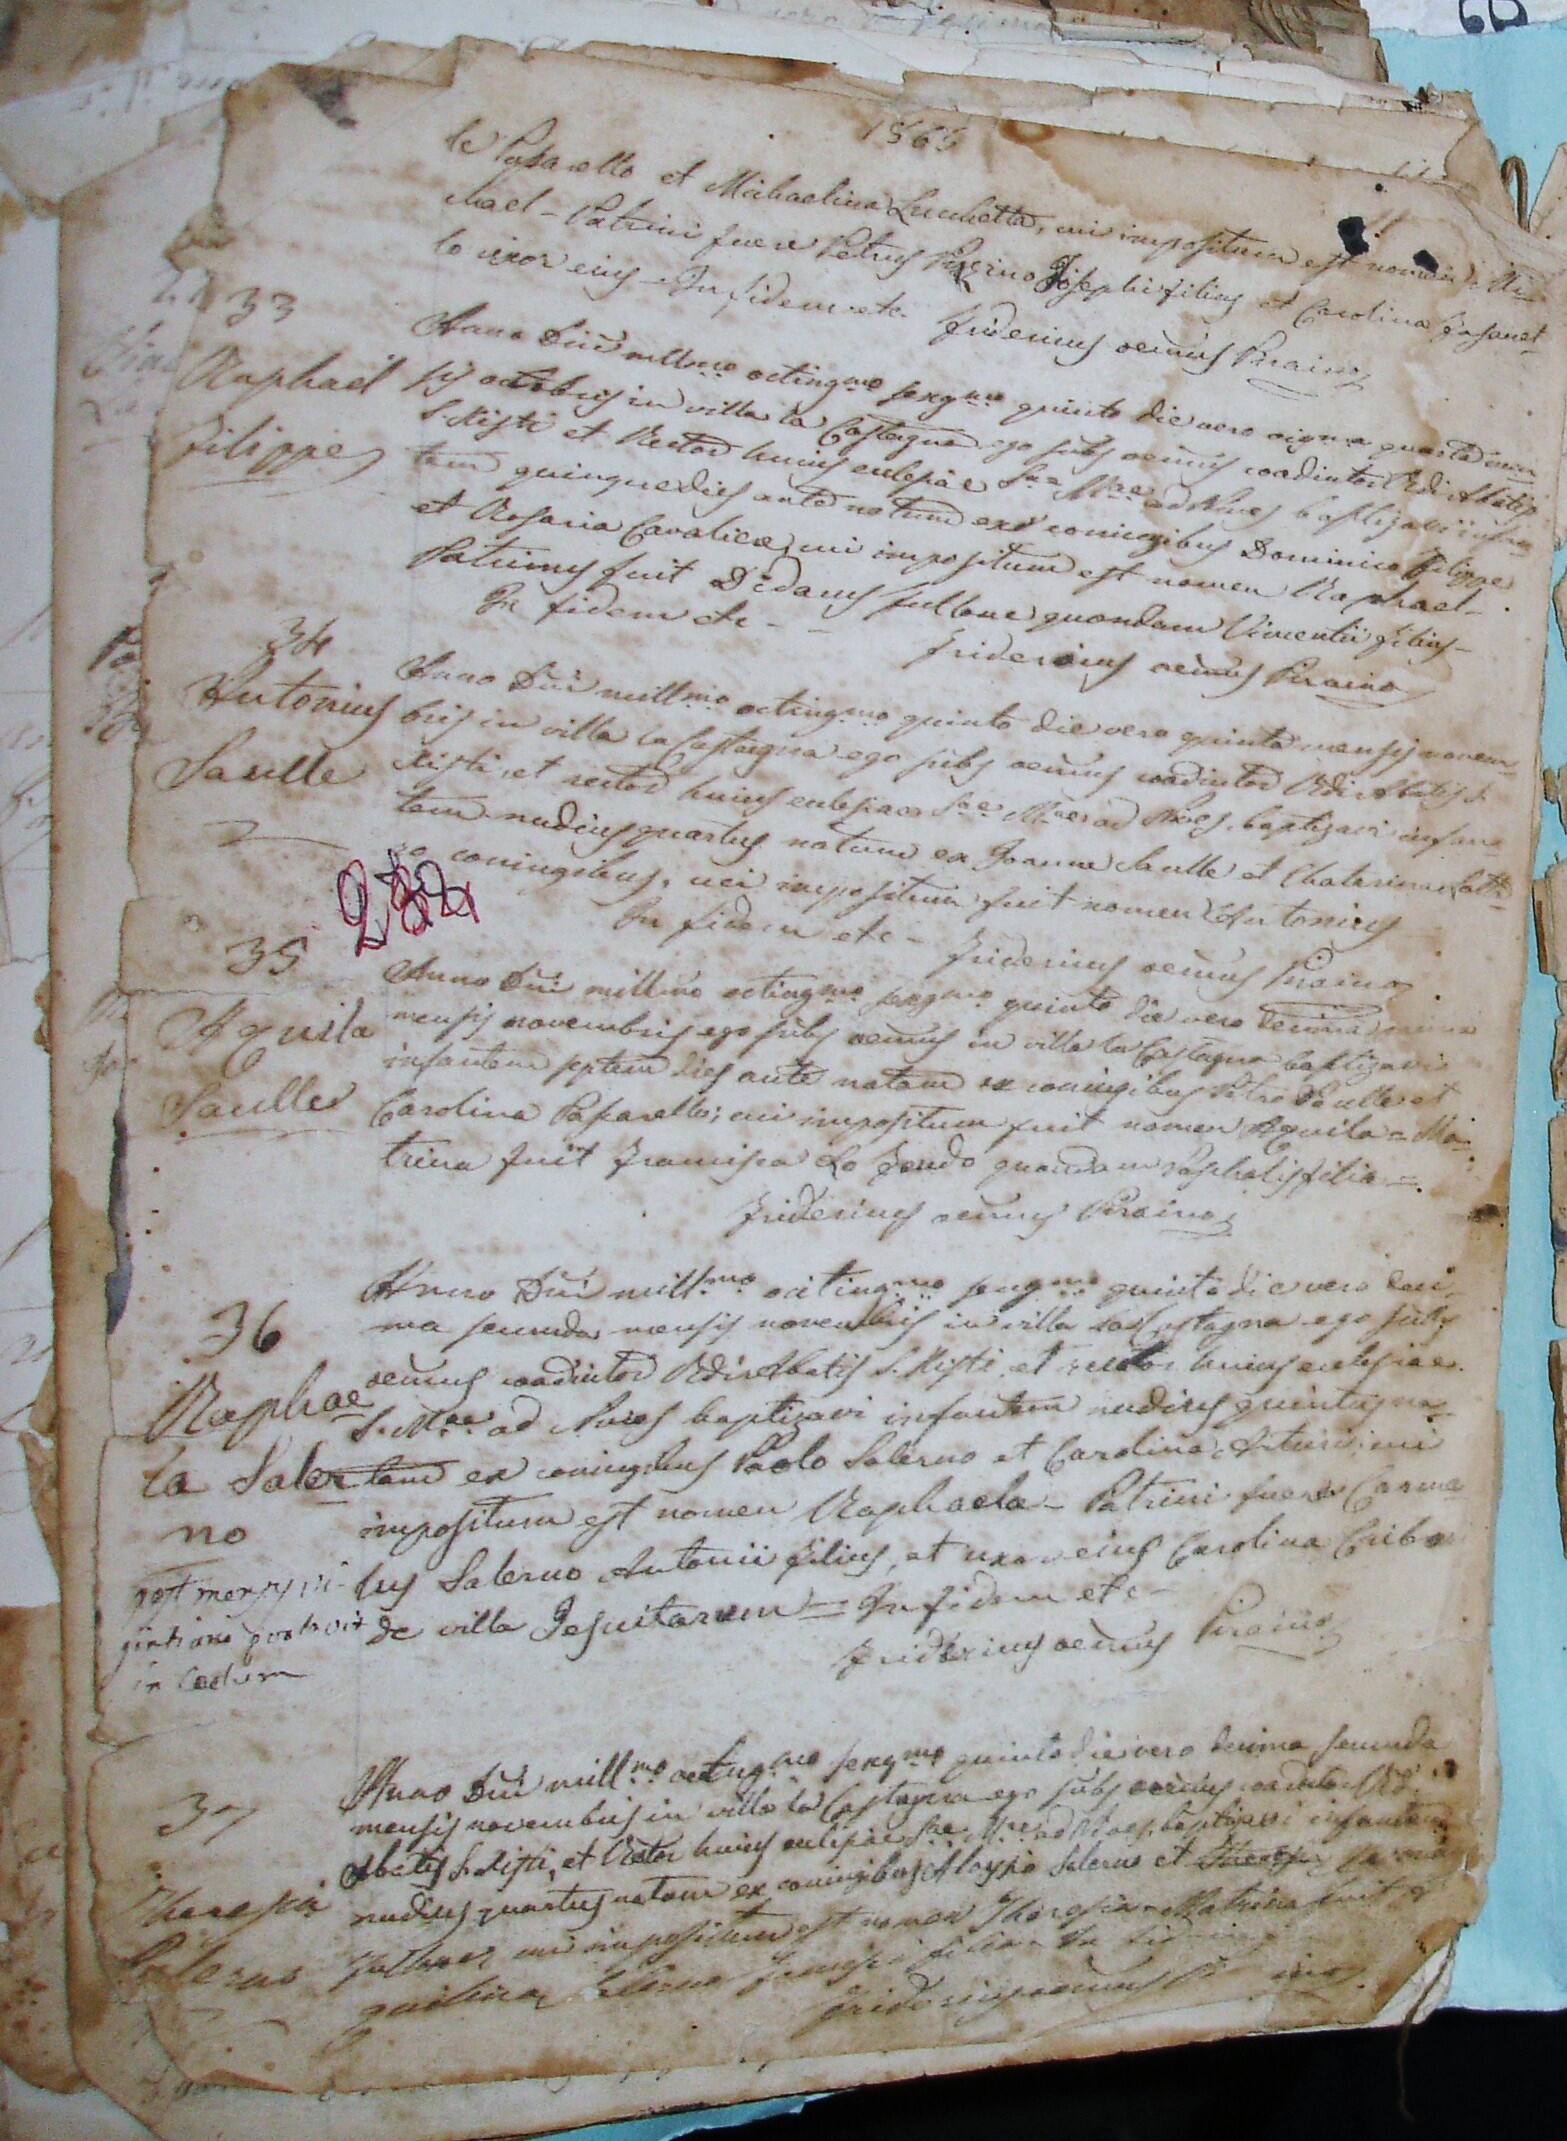 1865
le Paparello et Michaelina Luchetta, cui impositum est nomen Mi-
chael - Patrini fuere Petrus Josephi filius et Carolina Fasanel-
la uxor eius - In fidem etc. Fridericus oecmus Piraino
33
Raphael
Filippe
Anno Dni millmo octingmo sexgmo quinto die vero vigma quarta men
sis octobris in villa la Castagna ego subs oecmus coadiutor Rdi Abatis
S. Xisti et Rector huius eclesiae Sae Mae ad Nives baptizavi infan
tem quinque dies ante natum ex coniugibus Dominico Filippe
et Rosaria Cavaliere, cui impositum est nomen Raphael -
Patrinus fuit Didacus Fullone quondam Vincentii filius -
In fidem etc -
Fridericus oecmus Piraino
34
Antonius
Saulle
Anno Dni millmo octingmo quinto die vero quinta mensis novem
bris in villa la Castagna ego subs oecmus coadiutor Rdi Abatis S.
Xisti, et rector huius eclesiae Sae Mae ad Nives, baptizavi infan
tem nudius quartus natum ex Joanne Saulle et Chaterina
coniugibus, cui impositum fuit nomen Antonius
In fidem etc - Fridericus oecmus Piraino
282
35
Aquila
Saulle
Anno Dni millmo octingmo sexgmo quinto die vero decima prima
mensis novembris ego subs oecmus in villa la Castagna baptizavi
infantem septem dies ante natam ex coniugibus Petro Saulle et
Carolina Paparello; cui impositum fuit nomen Aquila = Ma-
trina fuit Francisca Lo Feudo quondam Paschalis filia =
Fridericus oecmus Piraino
36
Raphae
la Saler
no
post menses vi-
in coelum
Anno Dni millmo octingmo sexgmo quinto die vero deci
ma secunda mensis novembris in villa la Castagna ego subs
oecmus coadiutor Rdi Abatis S. Xisti, et rector huius eclesiae
S. Mae ad Nives baptizavi infantem nudius quintus na
tam ex coniugibus Paolo Salerno et Carolina Arturi; cui
impositum est nomen Raphaela - Patrini fuere Carme
lus Salerno Antonii filius, et uxor eius Carolina Criba
de villa Jesuitarum = In fidem etc -
Fridericus oecmus Piraino
37
Theresia
Salerno
Anno Dni millmo octingmo sexgmo quinto die vero decima secunda
mensis novembris in villa la Castagna ego subs oecmus coadiutor Rdi
Abatis S. Xisti, et Rector huius eclesiae Sae Mae ad Nives, baptizavi infantem
nudius quartus natam ex coniugibus Aloysio Salerno et
Fullone, cui impositum est nomen Theresia - Matrina fuit
Salerno filia - In fidem
Fridericus oecmus Piraino